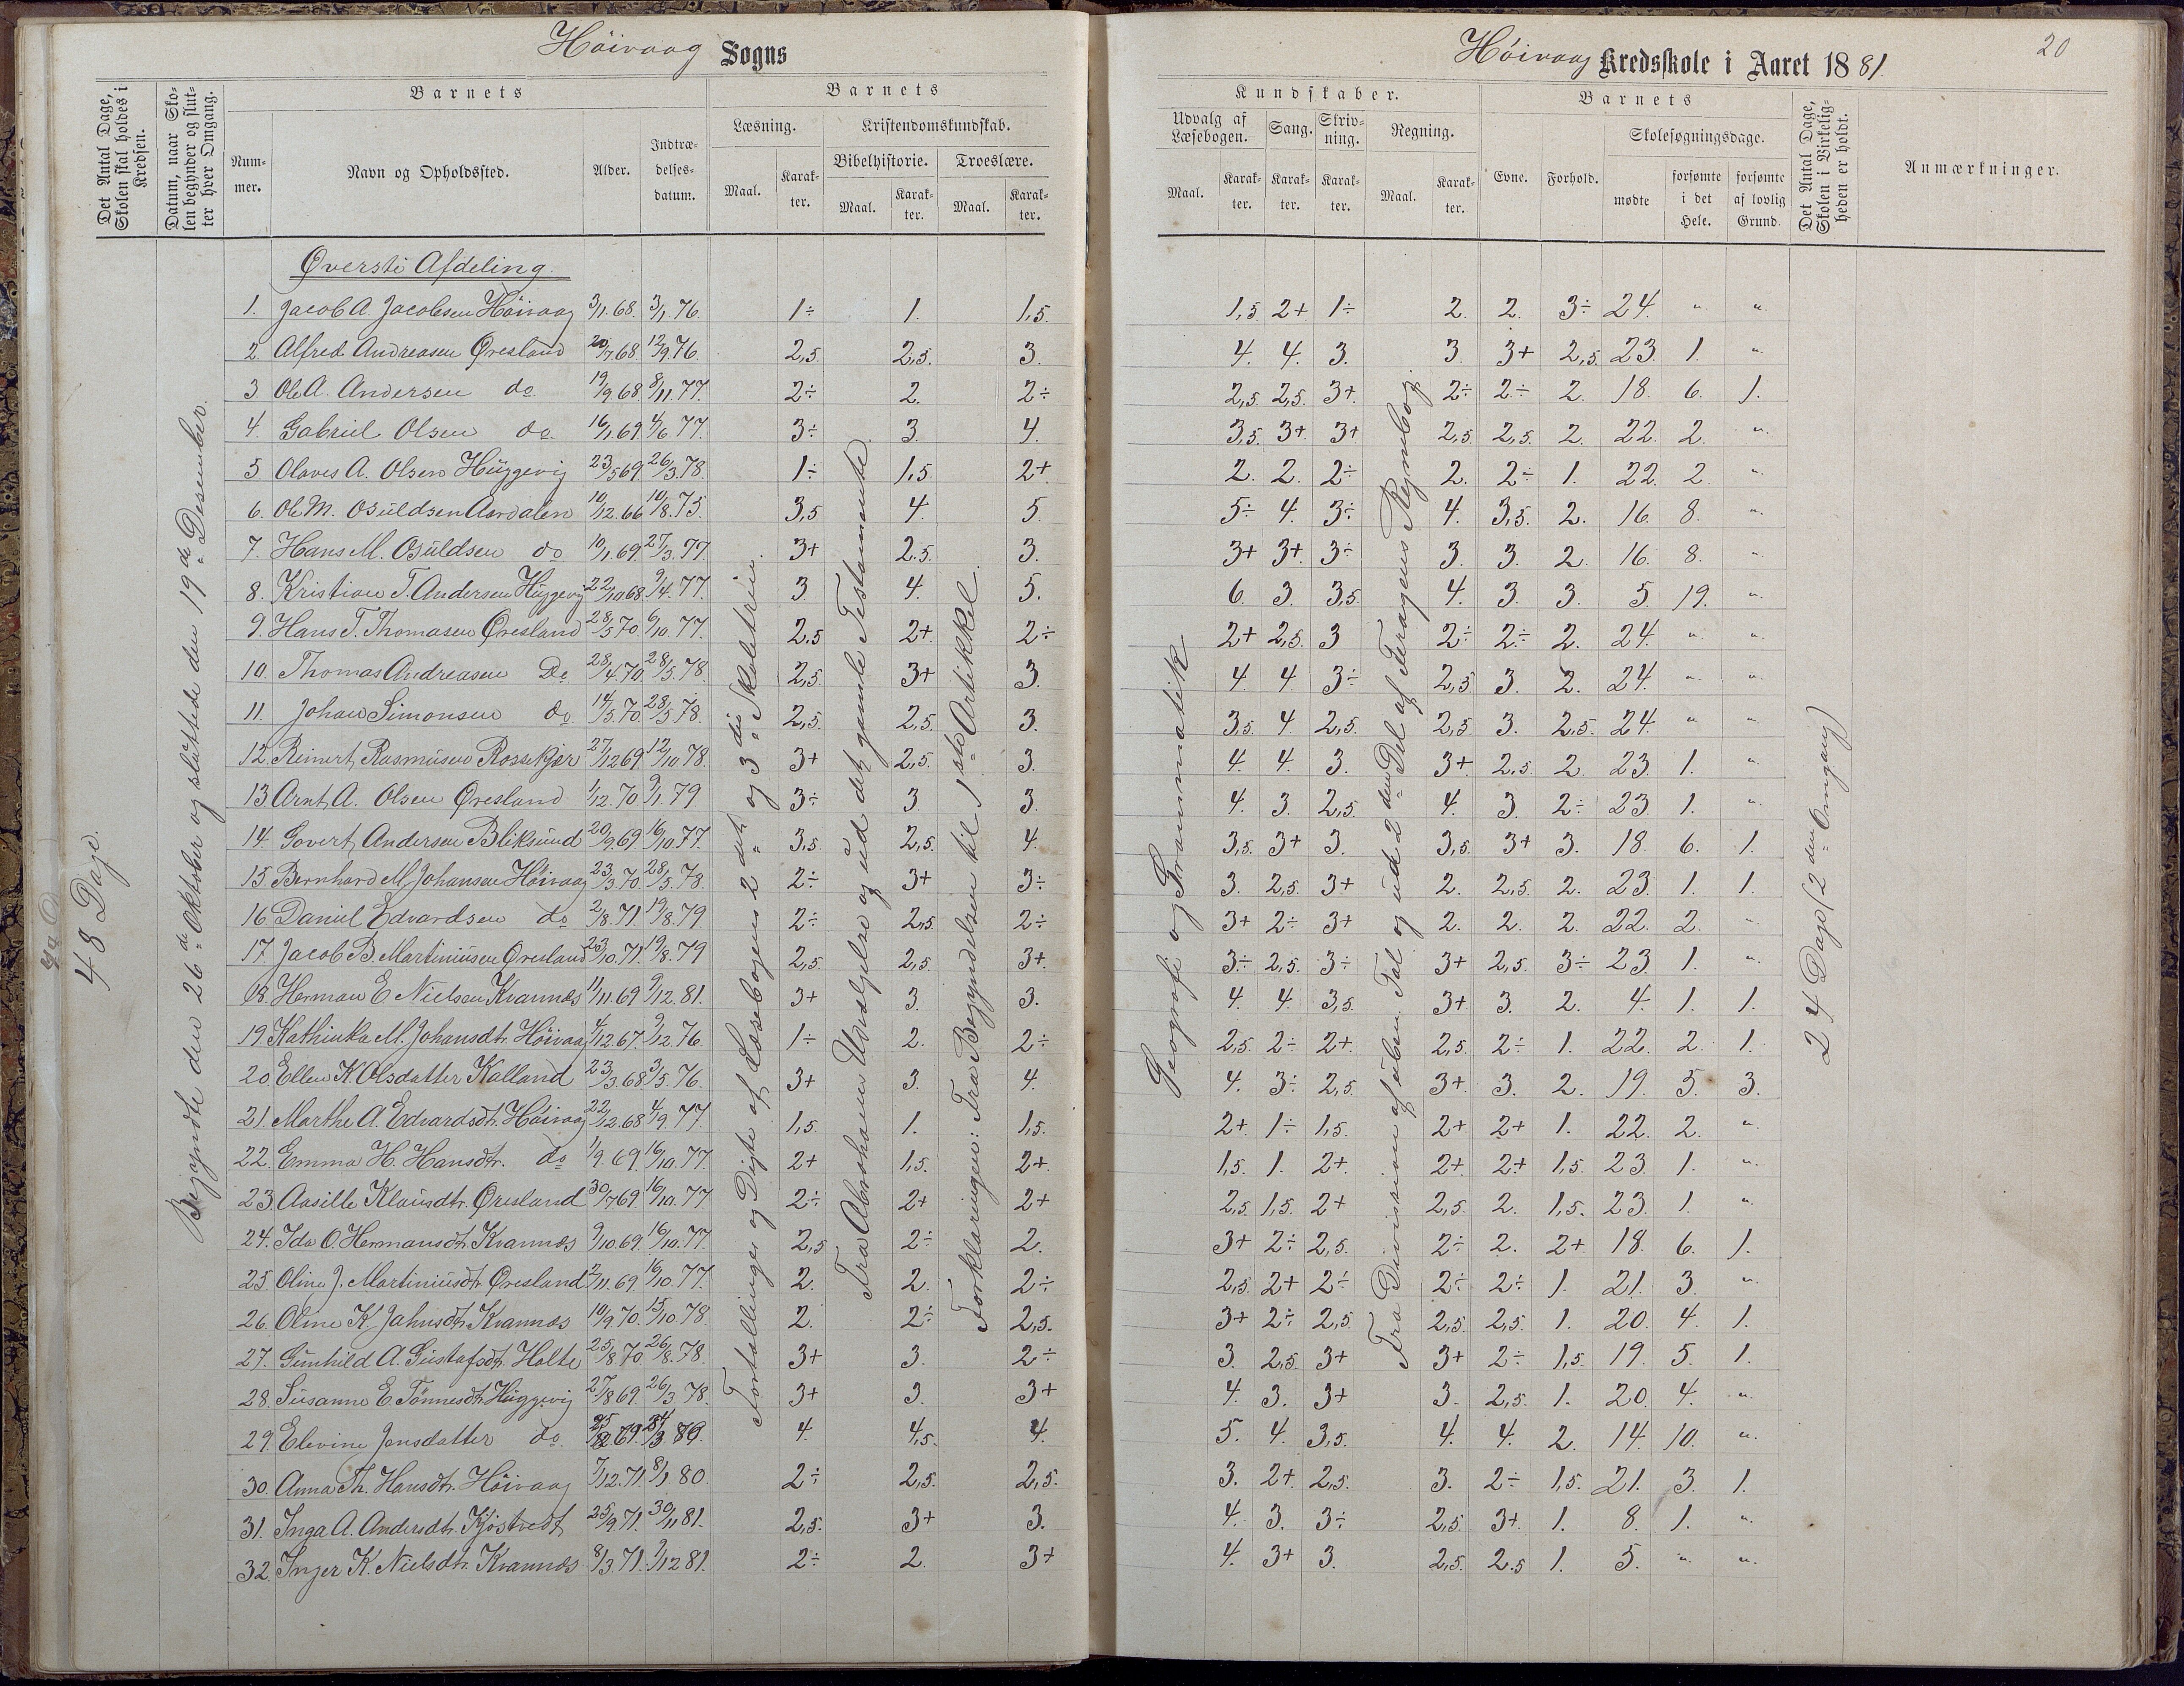 Höivaag Sogns
Höivaag Kredsskole i Aaret 1881.
20
Det Antal Dage, Skolen skal holdes i Kredsen.
Datum, naar Skolen begynder og slutter hver Omgang.
Barnets
Nummer.
Navn og Opholdssted.
Alder.
Indtrædelsesdatum.
Barnets
Læsning.
Maal.
Karakter.
Kristendomskundskab.
Bibelhistorie.
Maal.
Karakter.
Troeslære.
Maal.
Karakter.
Kundskaber.
Udvalg af Læsebogen.
Maal.
Karakter.
Sang.
Karakter.
Skrivning.
Karakter.
Regning.
Maal.
Karakter.
Barnets
Evne.
Forhold.
Skolesøgningsdage.
mødte
forsømte i det Hele.
forsømte af lovlig Grund.
Det Antal Dage, Skolen i Virkeligheden er holdt.
Anmærkninger.
48 Dage.
Begyndte den 26de Oktober og sluttede den 19de Desember.
Fortællinger og Digte af Læsebogens 2det og 3die Skoletrin.
Fra Abrahams Udvælgelse og ud det gamle Testamente
Forklaringen: Fra Begyndelsen til 1ste Artikkel.
Geografi og Grammatik
Fra Division af uben. Tal og ud 2den Del af Feragens Regnebog.
24 Dage (2den Omgang)
Øverste Afdeling.
1. Jacob A. Jacobsen Höivaag 3/1.68. 3/1.76. 1÷ 1. 1,5. 1,5. 2+ 1÷ 2. 2. 3÷ 24. " "
2. Alfred Andreasen Øresland 20/7.68. 12/9.76. 2,5. 2,5. 3. 4. 4. 3. 3. 3+ 2,5. 23. 1. "
3. Ole A. Andersen do 19/9.68. 8/11.77. 2÷ 2. 2÷ 2,5. 2,5. 3+. 2÷ 2÷ 2. 18. 6. 1.
4. Gabriel Olsen do. 16/1.69. 4/6.77. 3÷ 3. 4. 3,5. 3+ 3+ 2,5. 2,5. 2. 22. 2. "
5. Olaves A. Olsen Huggevig 23/5.69. 26/3.78. 1÷ 1,5 2+ 2. 2. 2÷ 2. 2÷ 1. 22. 2. "
6. Ole M. Osuldsen Aardalen 10/12.66 10/8.75. 3,5 4. 5. 5÷ 4. 3÷ 4. 3,5. 2. 16. 8. "
7. Hans M. Osuldsen do 10/1.69. 27/3.77. 3+ 2.5. 3. 3+ 3+ 3÷ 3. 3. 2. 16. 8. "
8. Kristian T. Andersen Huggevig 22/10 68. 9/4.77. 3 4. 5. 6. 3. 3,5. 4. 3. 3. 5. 19. "
9. Hans T. Thomasen Øresland 28/5 70. 6/10.77. 2,5 2+. 2÷ 2+ 2,5. 3 2÷ 2÷ 2. 24. " "
10. Thomas Andreasen Do 28/4.70. 28/5.78. 2,5. 3+ 3. 4. 4. 3÷ 2,5 3. 2. 24. " "
11. Johan Simonsen do. 14/5.70. 28/5.78. 2,5. 2,5. 3. 3,5. 4. 2,5. 2,5. 3. 2,5. 24. " "
12. Reinert Rasmusen Rossekjær 27/12 69. 12/10.78. 3+ 2,5. 3. 4. 4. 3. 3+. 2,5. 2. 23. 1. "
13 Arnt A. Olsen Øresland 1/12.70. 9/1.79 3÷ 3. 3. 4. 3. 2,5. 4. 3. 2÷ 23. 1. "
14. Govert Andersen Bliksund 20/9.69. 16/10.77. 3,5. 2,5. 4. 3,5. 3+ 3. 3,5. 3+ 3. 18. 6. 1.
15. Bernhard M. Johansen Höivaag 23/3.70. 28/5.78. 2÷ 3+ 3÷ 3. 2,5. 3+ 2. 2,5. 2. 23. 1. 1.
16 Daniel Edvardsen do 2/8.71. 19/8.79. 2÷ 2,5. 2÷ 3+ 2÷ 3+ 2. 2. 2. 22. 2. "
17. Jacob B. Martiniusen Øresland 23/10.71. 19/8.79 2,5. 2,5. 3+. 3÷ 2,5. 3÷ 3+ 2,5. 3÷ 23. 1. "
18. Herman E Nielsen Kvannes 11/11.69 9/12.81. 3+ 3. 3. 4. 4. 3,5. 3+ 3. 2. 4. 1. 1.
19. Kathinka M. Johansdt. Höivaag 4/12 67. 9/12.76. 1÷ 2. 2÷ 2,5. 2÷ 2+. 2,5. 2÷ 1. 22. 2. 1.
20 Ellen K. Olsdatter Kalland 23/3.68 3/5.76. 3+ 3. 4. 4. 3÷ 2,5. 3+. 3. 2. 19. 5. 3.
21. Marthe A. Edvardsdt. Höivaag 22/12.68 4/9.77. 1,5. 1. 1,5. 2+. 1÷ 1,5. 2+ 2+ 1. 22. 2. "
22. Emma H. Hansdtr. do 1/9.69. 16/10.77. 2+ 1,5. 2+. 1,5. 1. 2+. 2+. 2+ 1,5. 23. 1. "
23. Aasille Klausdtr. Øresland 30/7 69. 16/10.77 2÷ 2+ 2+ 2,5. 1,5. 2+ 2,5. 2. 1,5. 23. 1. "
24. Ida O. Hermansdt. Kvannes 9/10.69. 16/10.77. 2,5 2÷ 2. 3+ 2÷ 2,5. 2÷ 2. 2+. 18. 6. 1.
25. Oline J. Martiniusdt. Øresland 2/11.69. 16/10.77. 2. 2. 2÷ 2,5. 2+ 2÷ 2÷ 2÷ 1. 21. 3. "
26. Oline K. Jahnsdt. Kvannes 10/9.70. 15/10.78. 2. 2÷ 2,5. 3+ 2÷ 2,5. 2,5. 2,5. 1. 20. 4. 1.
27. Gunhild A. Gustafsdt. Holte 25/8 70. 26/8.78. 3+ 3. 2÷ 3. 2,5. 3+ 3+ 2÷ 1,5. 19. 5. 1.
28. Susanne E. Tönnesdt. Huggevig 27/8 69. 26/3.78. 3+ 3. 3+ 4. 3. 3+ 3. 2,5. 1. 20. 4. "
29. Elevine Jensdatter do. 4. 4,5. 4. 5. 4. 3,5. 4. 4. 2. 14. 10. "
30. Anna Th. Hansdt. Höivaag 7/12.71. 8/1.80. 2÷ 2,5. 2,5. 3. 2+. 2,5. 3. 2÷ 1,5. 21. 3. 1.
31. Inga A. Andersdt. Kjöstvedt 25/9.71. 30/11 81. 2,5. 3+ 3. 4. 3. 3÷ 2,5. 3+. 1. 8. 1. "
32. Inger K. Nielsdtr. Kvannes 8/3.71. 9/12 81. 2÷ 2. 3+ 4. 3+ 3. 2,5. 2.5 1. 5. " "